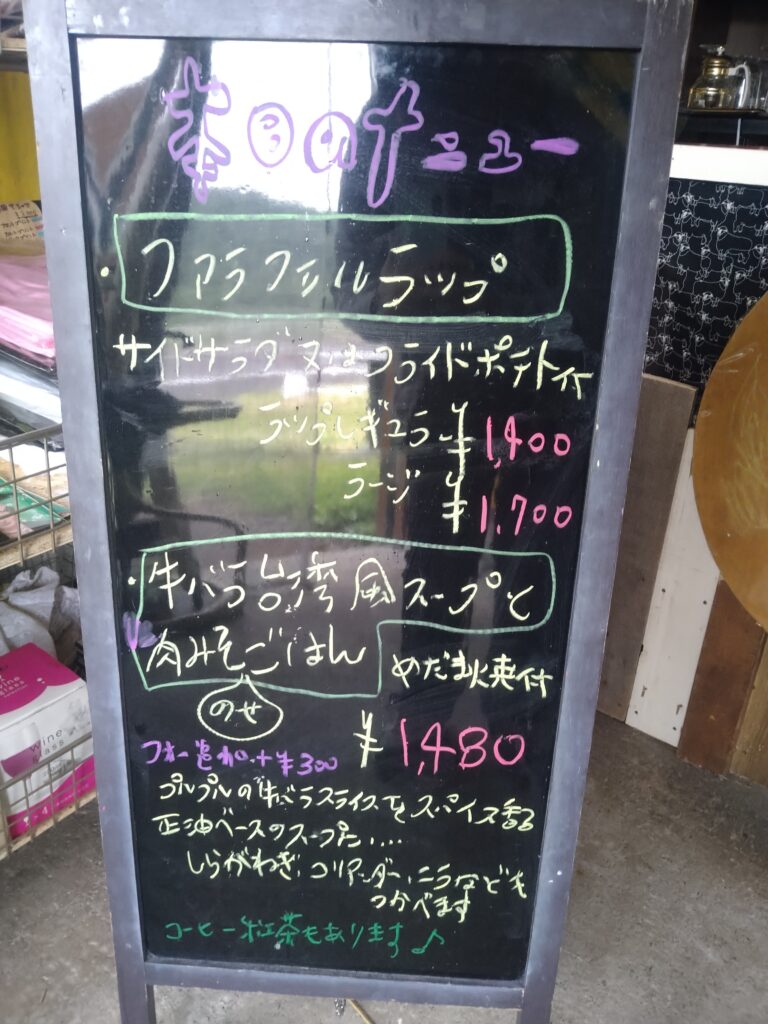 春日のメニュー
・ファラフェルラップ
サイドサラダ又はフライドポテト付
ラップレギュラー ¥1,400
ラージ ¥1,700
・牛バラ台湾風スープと
肉みそごはん
のせ
めだま火焼付
¥1,480
フォー追加+¥300
プルプルの牛バラスライスをスパイス香る
正油ベースのスープに....
しらがねぎ、コリアンダー、ニラなども
つかべます
コーヒー紅茶もあります♪
wine
glass